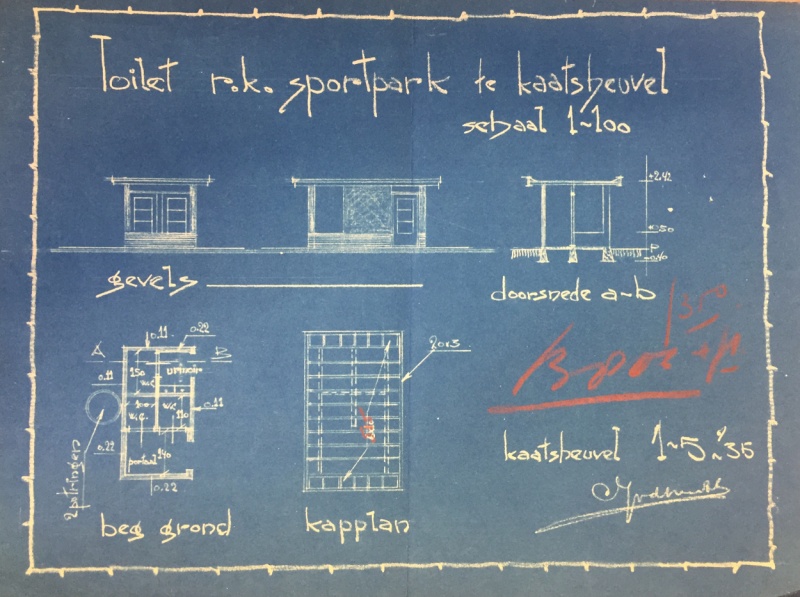 Toilet r.k. sportpark te kaatsheuvel
schaal 1~100
+2.42
+0.50
P
0.40
gevels
doorsnede a-b
0.11 0.22
A B
150 urinoir
w.c.
0.11
w.c. w.c. 110 0.11
0.22
portaal 140
2 putringen
0.22
20x3
beg grond
kapplan
kaatsheuvel 1~5~'35